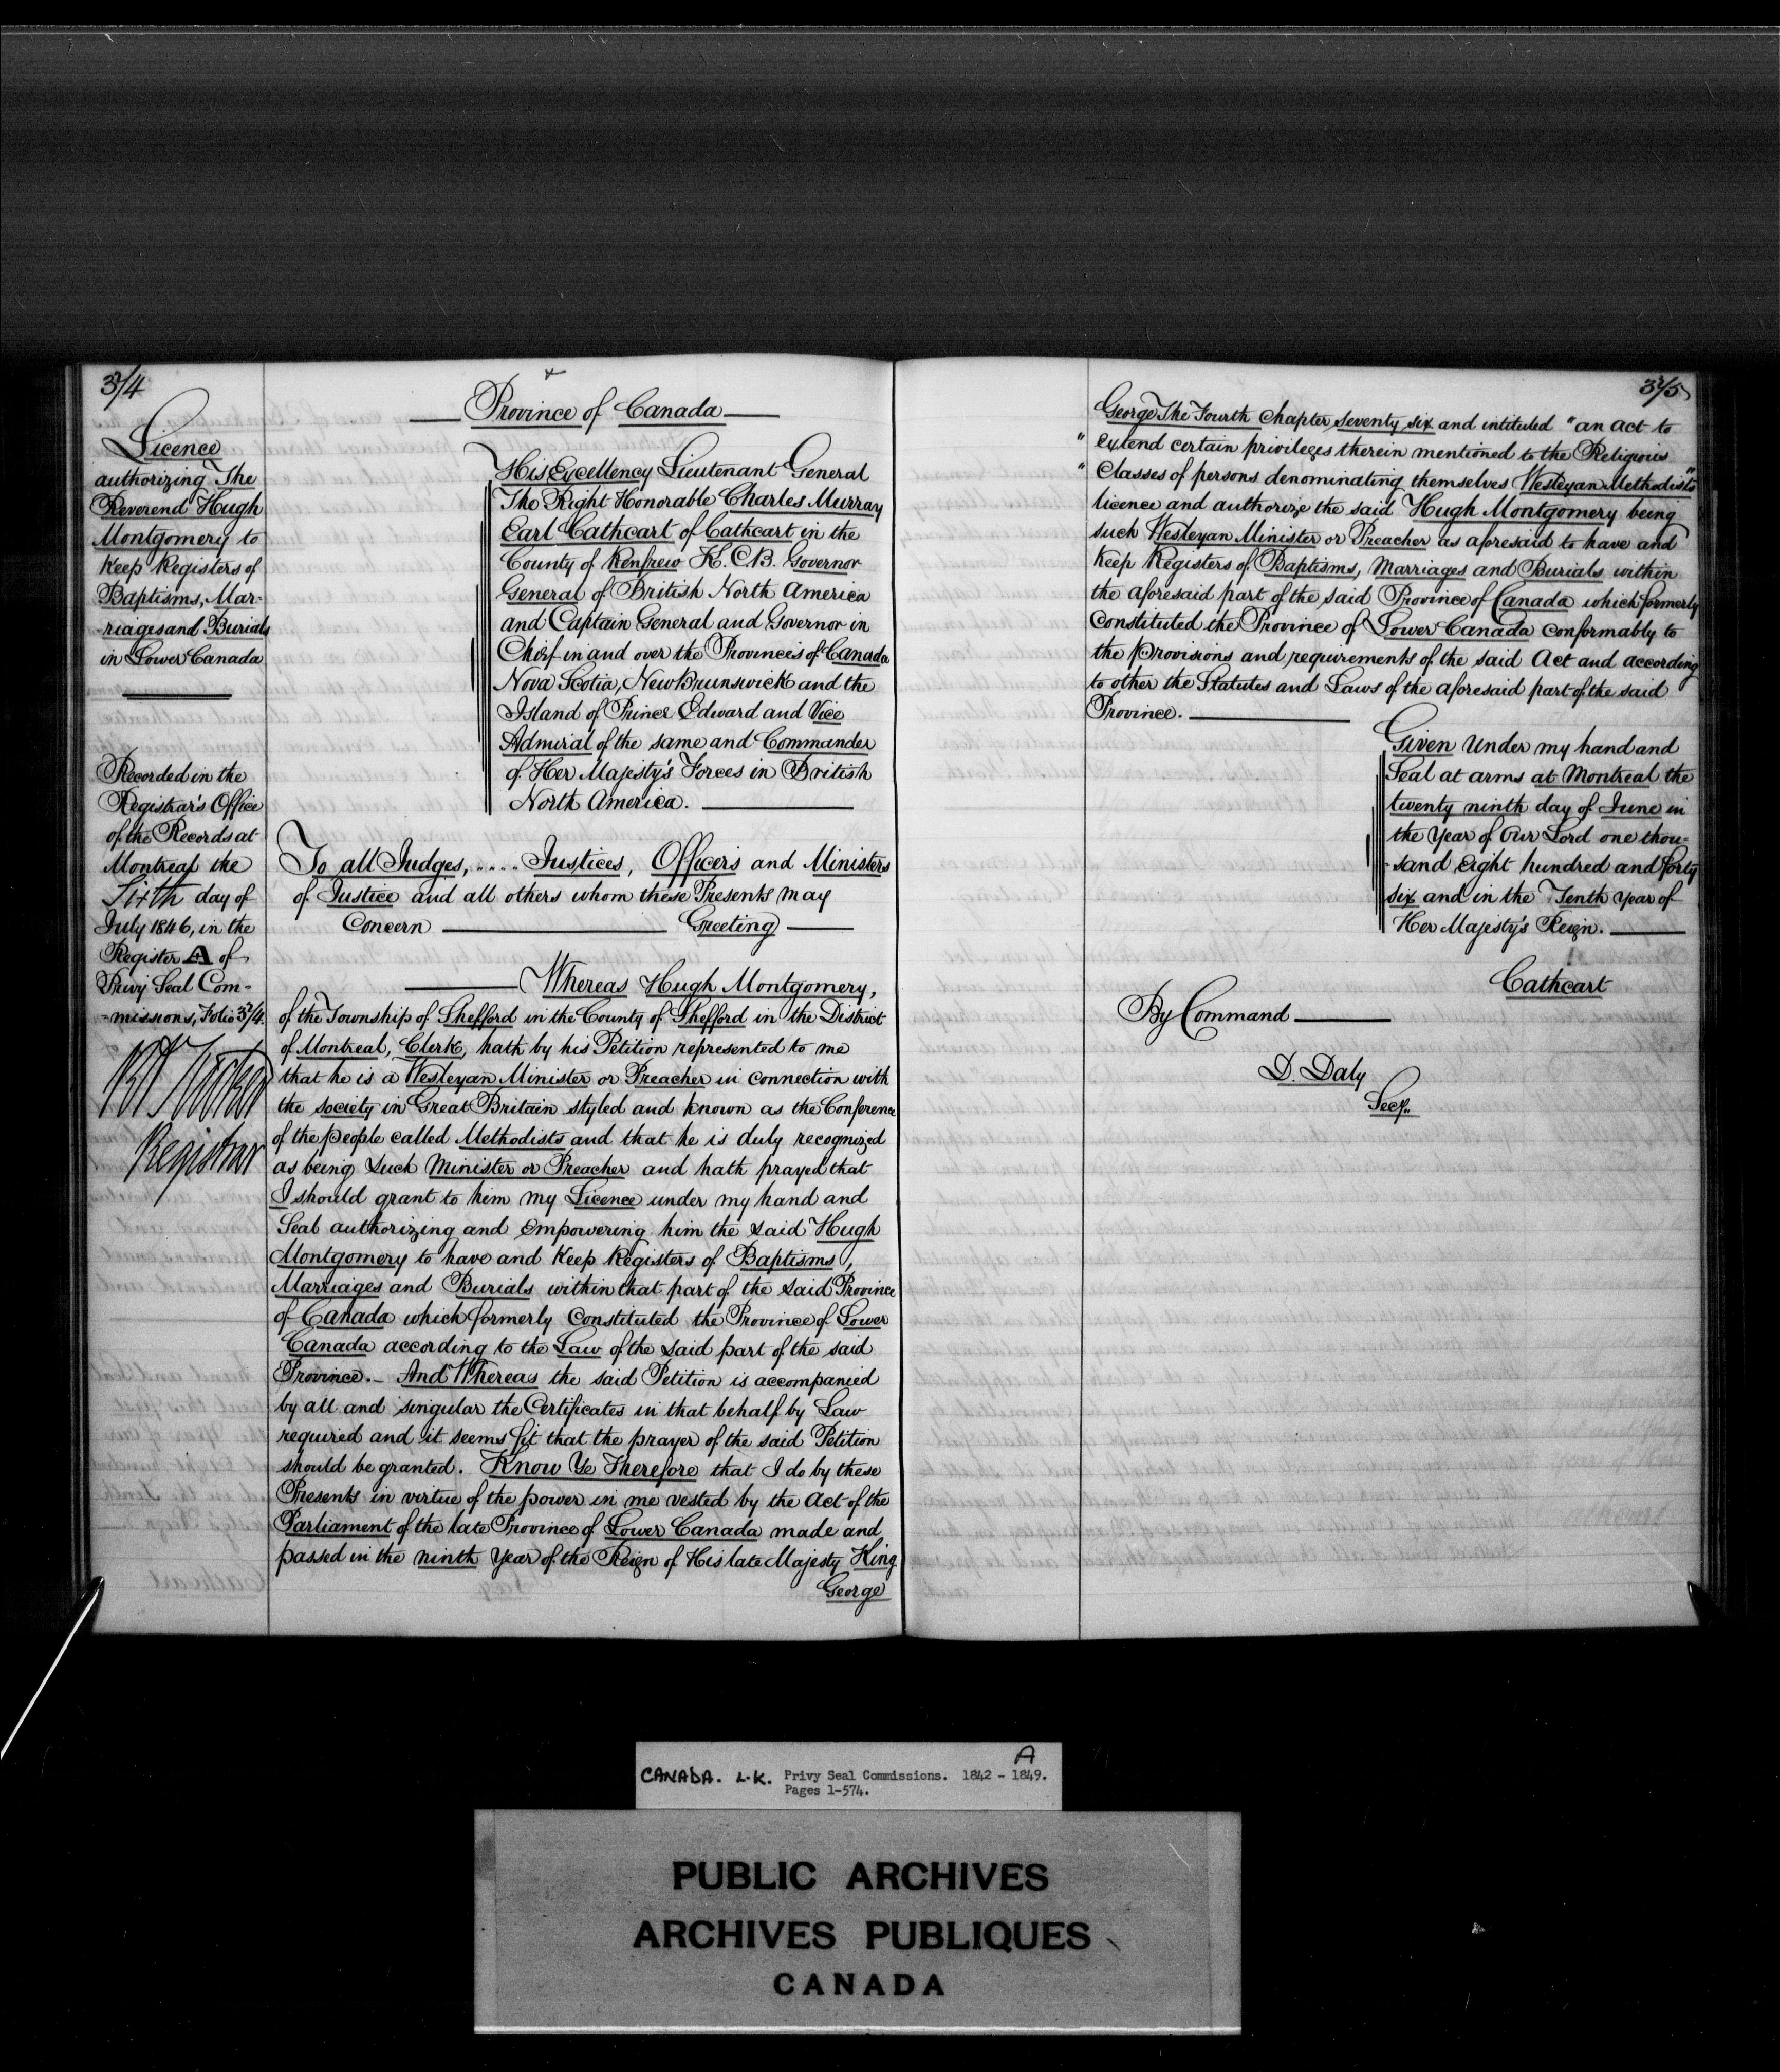 374
Licence
authorizing The
Reverend Hugh
Montgomery to
Keep Registers of
Baptisms, Mar-
-riages and Burials
in Lower Canada
Recorded in the
Registrar's Office
of the Records at
Montreal the
Sixth day of
July 1846, in the
Register A of
Privy Seal Com-
-missions, Folio 374.
Registrar
Province of Canada
His Excellency Lieutenant General
The Right Honorable Charles Murray
Earl Cathcart of Cathcart in the
County of Renfrew K.C.B. Governor
General of British North America
and Captain General and Governor in
Chief in and over the Provinces of Canada
Nova Scotia, New Brunswick and the
Island of Prince Edward and Vice
Admiral of the same and Commander
of Her Majesty's Forces in British
North America.
To all Judges, ..... Justices, Officers and Ministers
of Justice and all others whom these Presents may
Concern Greeting
Whereas Hugh Montgomery,
of the Township of Shefford in the County of Shefford in the District
of Montreal, Clerk, hath by his Petition represented to me
that he is a Wesleyan Minister or Preacher in connection with
the society in Great Britain styled and known as the Conference
of the people called Methodists and that he is duly recognized
as being such Minister or Preacher and hath prayed that
I should grant to him my Licence under my hand and
Seal authorizing and empowering him the said Hugh
Montgomery to have and Keep Registers of Baptisms,
Marriages and Burials within that part of the said Province
of Canada which formerly Constituted the Province of Lower
Canada according to the Law of the said part of the said
Province. – And Whereas the said Petition is accompanied
by all and singular the Certificates in that behalf by Law
required and it seems fit that the prayer of the said Petition
should be granted. Know Ye Therefore that I do by these
Presents in virtue of the power in me vested by the Act of the
Parliament of the late Province of Lower Canada made and
passed in the ninth Year of the Reign of His late Majesty King
George
375
George The Fourth Chapter seventy six and intituled "an Act to
" extend certain privileges therein mentioned to the Religious
" Classes of persons denominating themselves Wesleyan Methodists"
licence and authorize the said Hugh Montgomery being
such Wesleyan Minister or Preacher as aforesaid to have and
Keep Registers of Baptisms, Marriages and Burials within
the aforesaid part of the said Province of Canada which formerly
Constituted the Province of Lower Canada conformably to
the provisions and requirements of the said Act and according
to other the Statutes and Laws of the aforesaid part of the said
Province.
Given Under my hand and
Seal at arms at Montreal the
twenty ninth day of June in
the Year of Our Lord one thou-
-sand Eight hundred and forty
six and in the Tenth Year of
Her Majesty's Reign.
Cathcart
By Command
D. Daly
Secy.
A
CANADA. L.K. Privy Seal Commissions. 1842 - 1849.
Pages 1-574.
PUBLIC ARCHIVES
ARCHIVES PUBLIQUES
CANADA